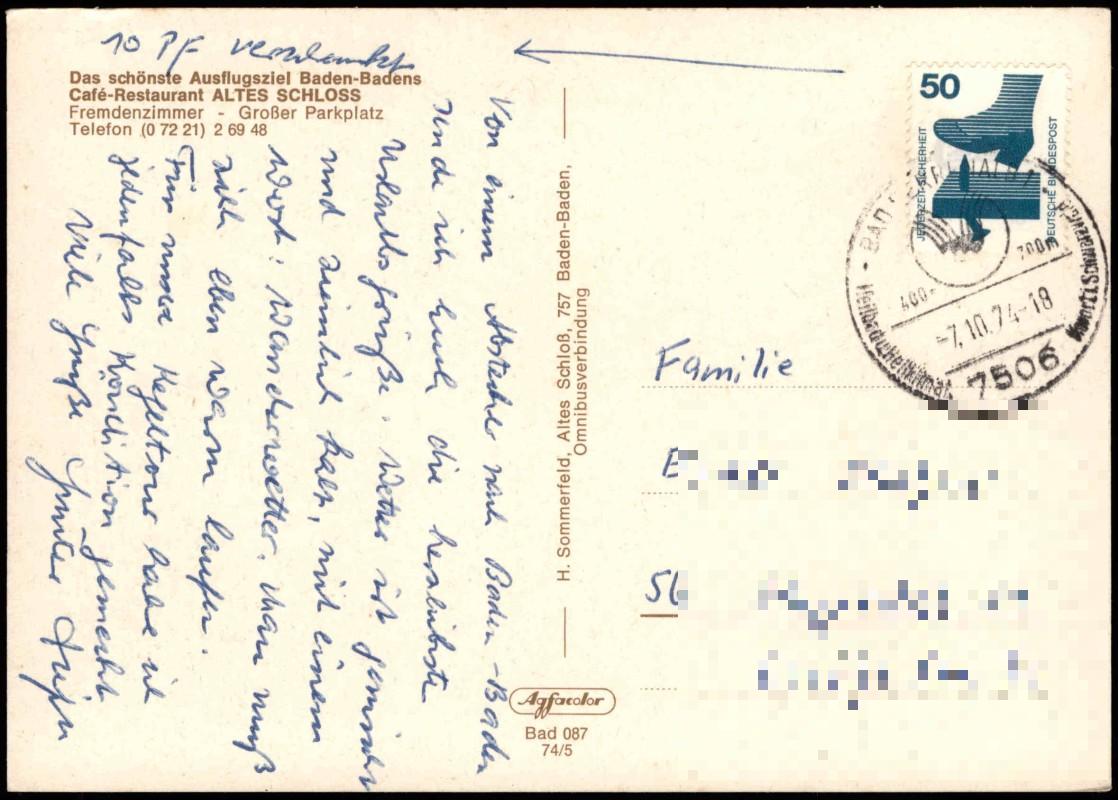 10 Pf verschenkt
Das schönste Ausflugsziel Baden-Badens
Café-Restaurant ALTES SCHLOSS
Fremdenzimmer - Großer Parkplatz
Telefon (0 72 21) 2 69 48
Von einem Abstecher nach Baden-Baden
sende ich Euch die herzlichsten
Urlaubsgrüße. Wetter ist gemischt
und ziemlich kalt, mit einem
Wort: Wanderwetter. Man muß
sich eben warm laufen.
Für unsere Kegeltour habe ich
jedenfalls Kondition gemacht
Viele Grüße Günter
H. Sommerfeld, Altes Schloß, 757 Baden-Baden,
Omnibusverbindung
Agfacolor
Bad 087
74/5
50
JEDERZEIT SICHERHEIT
DEUTSCHE BUNDESPOST
BAD HERRENALB
400-700m
-7.10.74-18
7506
Heilbad
Familie
E
56